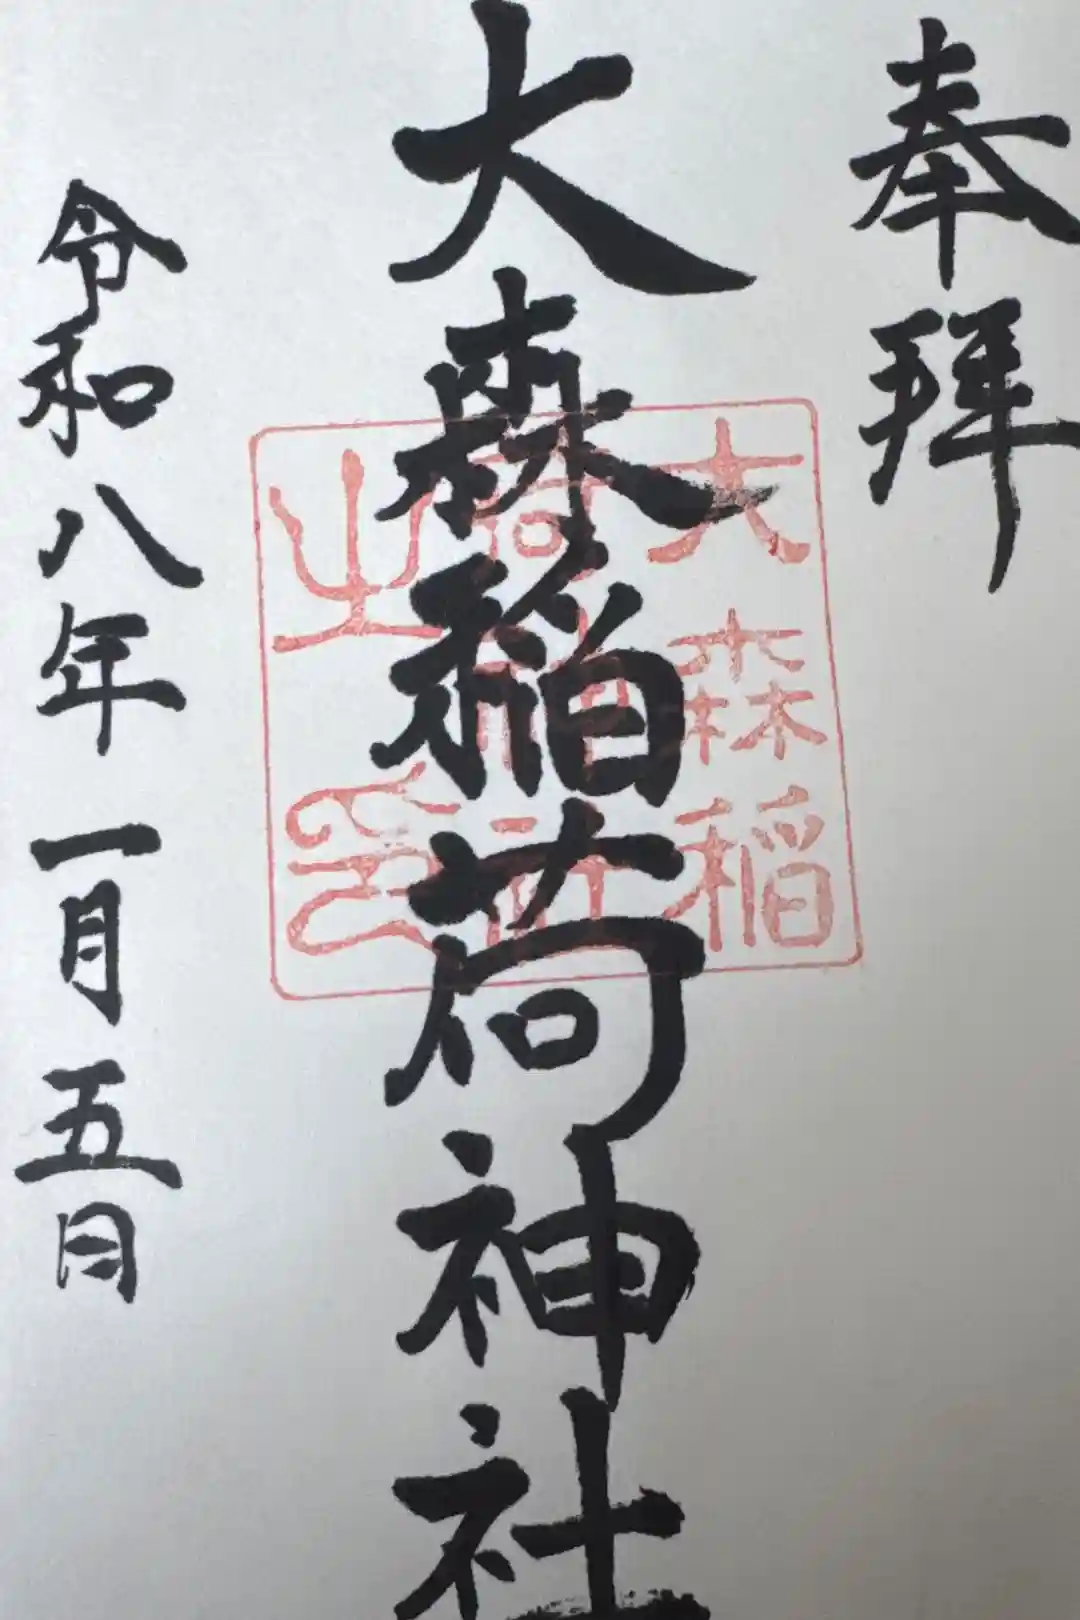 奉拝
大森稲荷神社
令和八年一月五日
大森稲
荷神社
之印